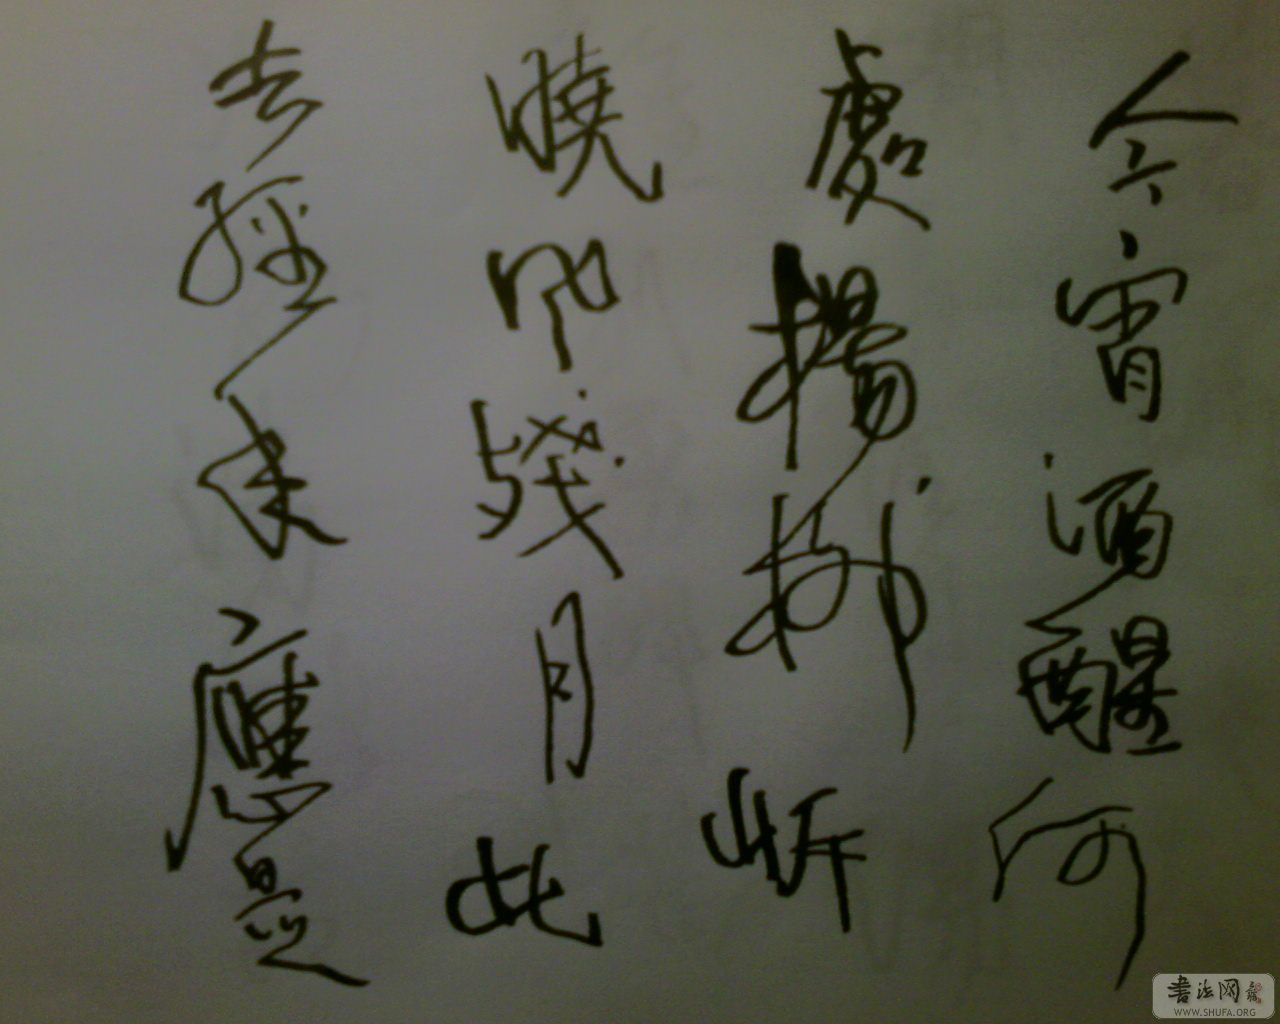 今宵酒醒何
處楊柳岸
曉風殘月此
去經年應是
書法网
WWW.SHUFA.ORG